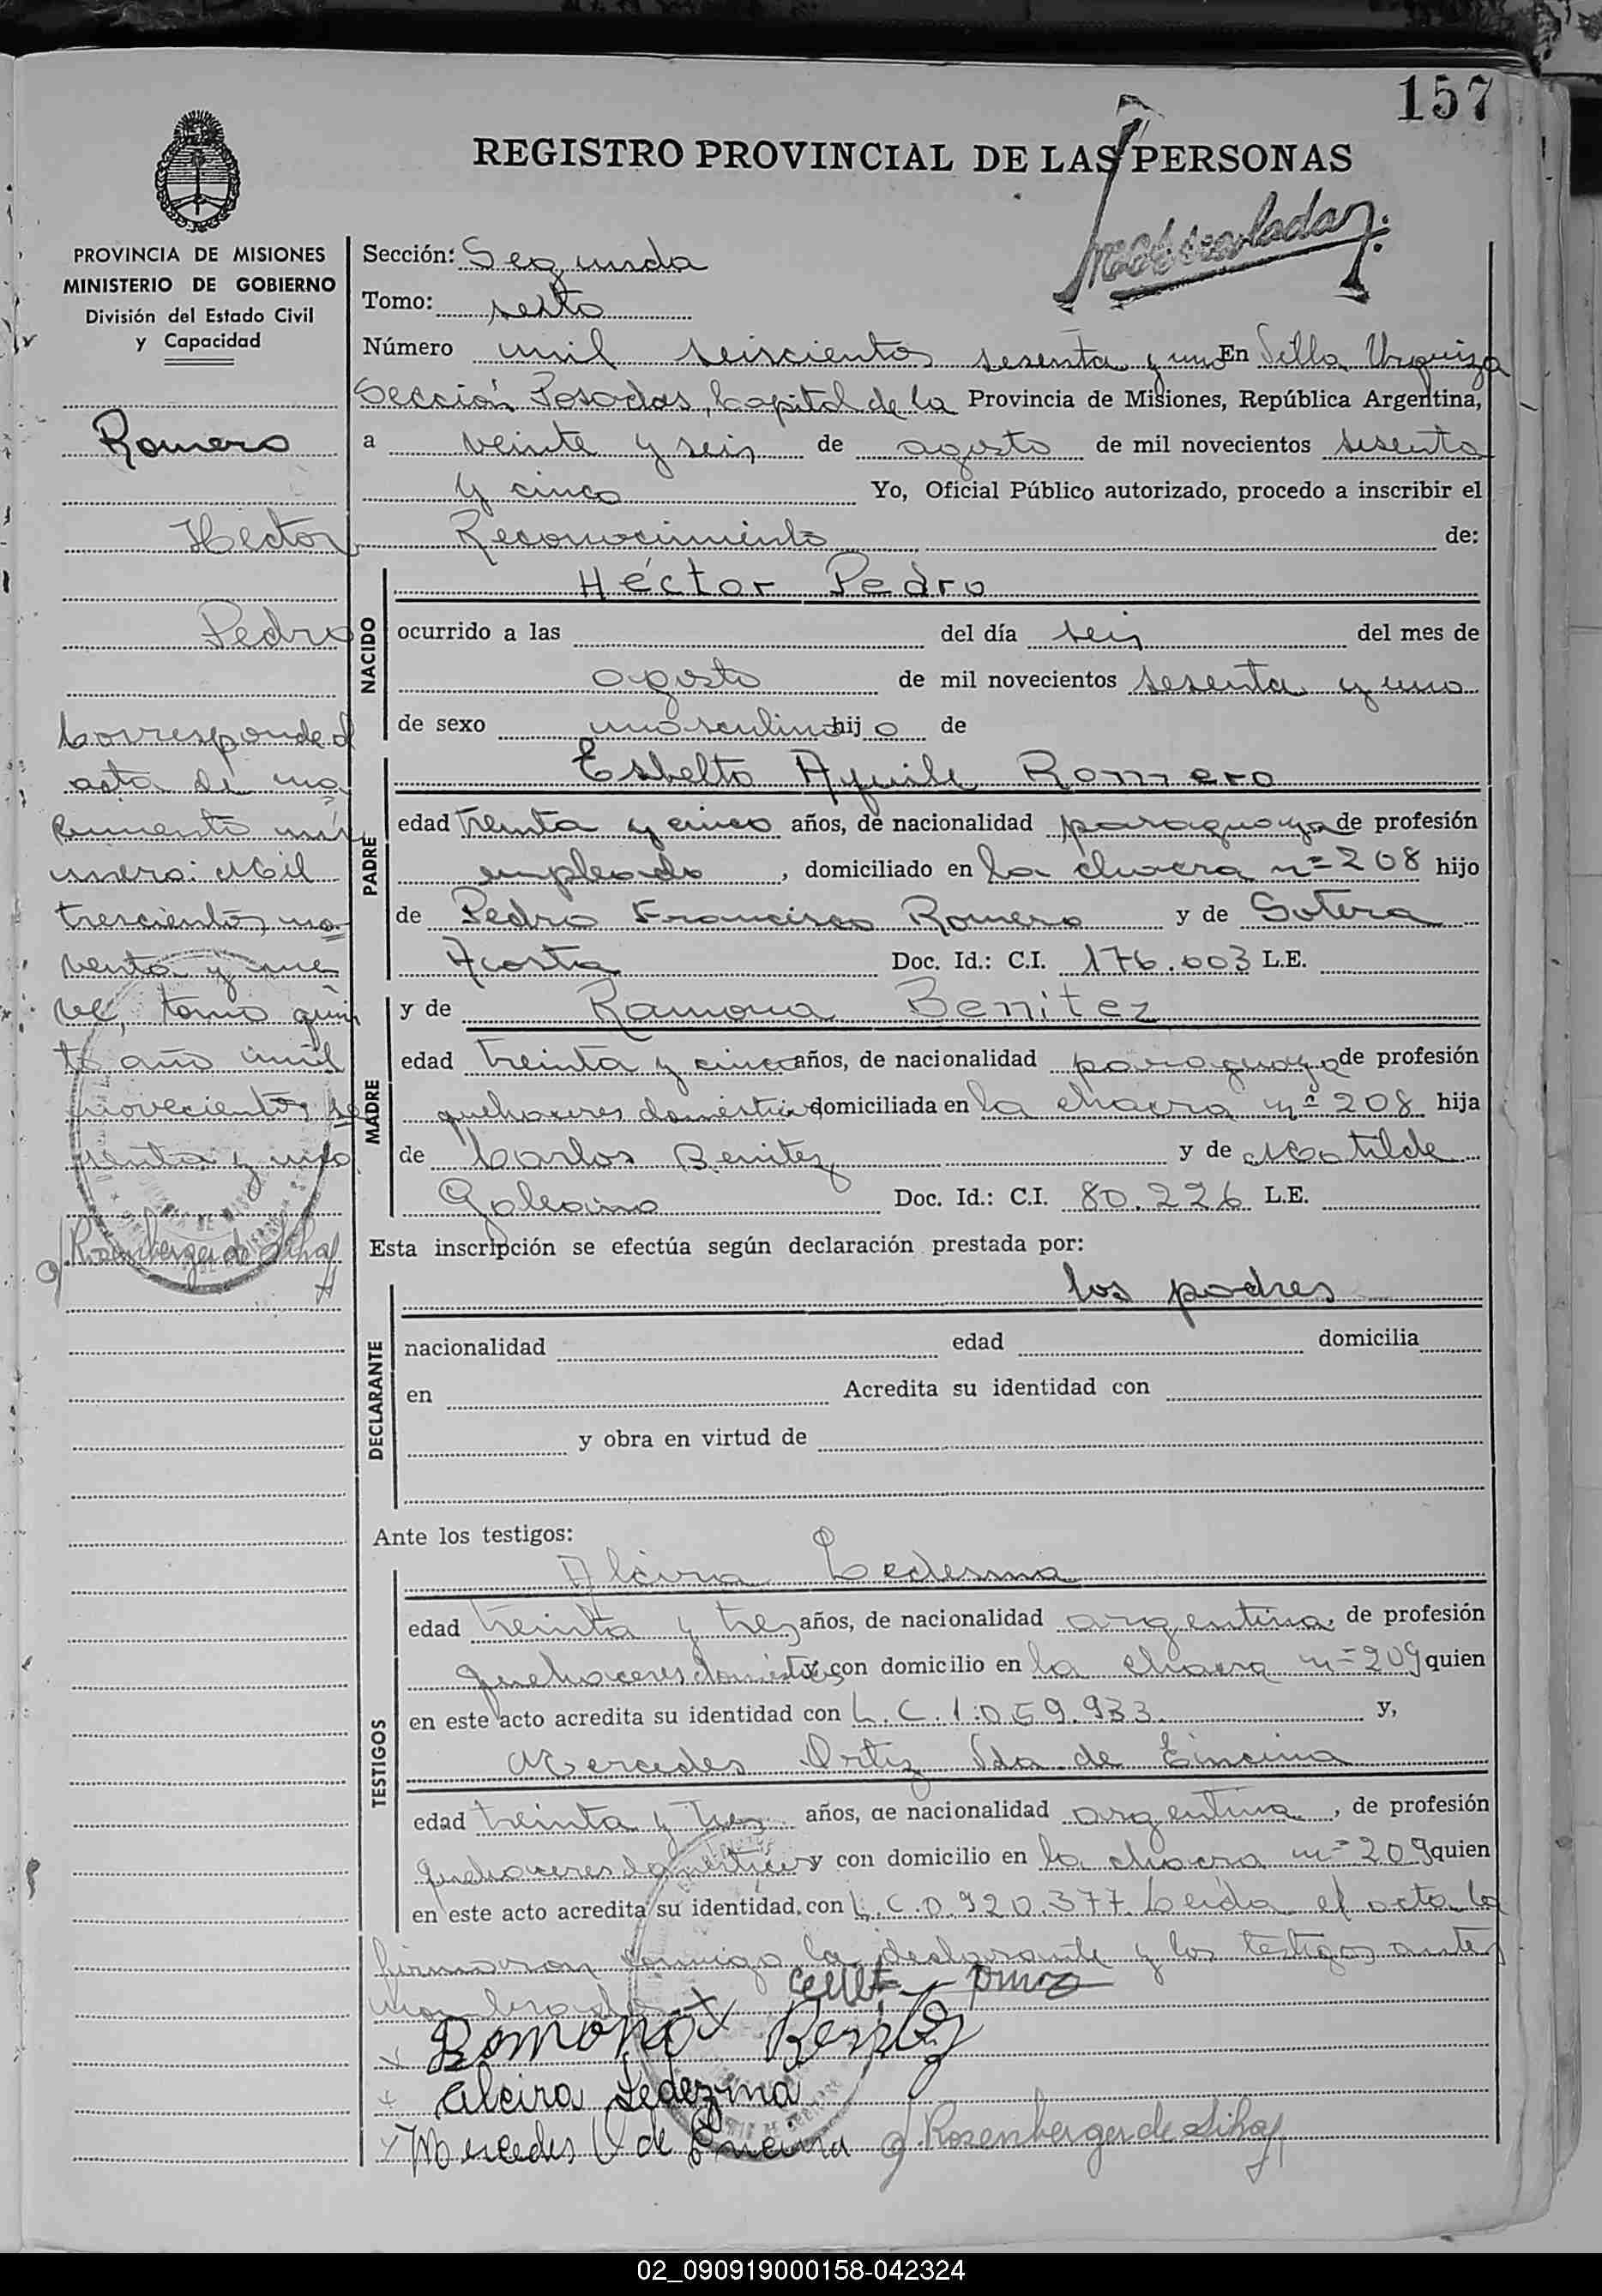 157
REGISTRO PROVINCIAL DE LAS PERSONAS
PROVINCIA DE MISIONES
MINISTERIO DE GOBIERNO
División del Estado Civil
y Capacidad
Romero
Hector
Pedro
Corresponde al
acta de na
cimiento nú
mero: Mil
trescientos no
venta y nue
ve, tomo quin
to año mil
novecientos se
senta y uno
Rosenberger de Silva
Sección: Segunda
Tomo: sexto
Número mil seiscientos sesenta y uno En Villa Urquiza
Sección Posadas, Capital de la Provincia de Misiones, República Argentina,
a veinte y seis de agosto de mil novecientos sesenta
y cinco Yo, Oficial Público autorizado, procedo a inscribir el
Reconocimiento de:
NACIDO
Héctor Pedro
ocurrido a las del día seis del mes de
agosto de mil novecientos sesenta y uno
de sexo masculino hijo de
PADRE
Esbelto Romero
edad treinta y cinco años, de nacionalidad paraguaya de profesión
empleado, domiciliado en la chacra nº 208 hijo
de Pedro Francisco Romero y de Sotera
Acosta Doc. Id.: C.I. 176.003 L.E.
MADRE
y de Ramona Benitez
edad treinta y cinco años, de nacionalidad paraguaya de profesión
quehaceres domésticos domiciliada en la chacra nº 208 hija
de Carlos Benitez y de Matilde
Galeano Doc. Id.: C.I. 80.226 L.E.
Esta inscripción se efectúa según declaración prestada por:
DECLARANTE
los padres
nacionalidad edad domicilia
en Acredita su identidad con
y obra en virtud de
Ante los testigos:
TESTIGOS
Alcira Ledesma
edad treinta y tres años, de nacionalidad argentina, de profesión
quehaceres domésticos y con domicilio en la chacra nº 209 quien
en este acto acredita su identidad con L.C. 1.059.933 y,
Mercedes Ortiz Vda. de Encina
edad treinta y tres años, de nacionalidad argentina, de profesión
quehaceres domésticos y con domicilio en la chacra nº 209 quien
en este acto acredita su identidad con L.C. 0.920.377. Leída el acta la
firmaron conmigo la declarante y los testigos antes
nombrados
Ramona Benitez
Alcira Ledezma
Mercedes O de Encina Rosenberger de Silva
02_090919000158-042324